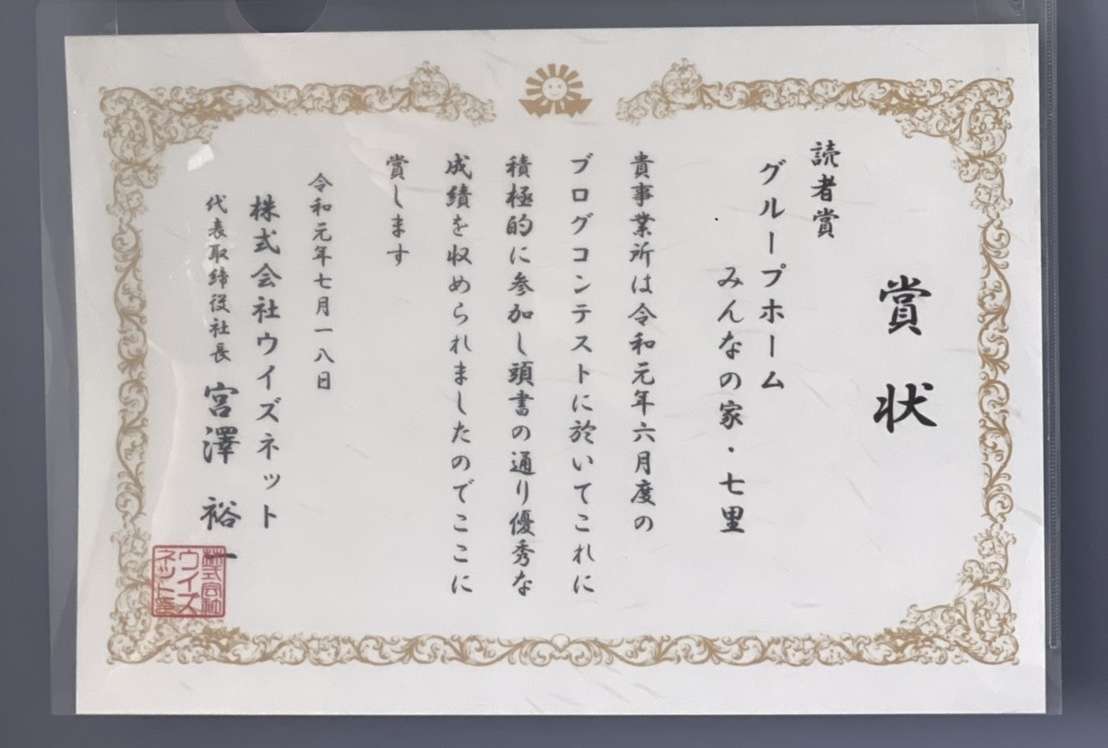 賞状
読者賞
グループホーム
みんなの家・七里
貴事業所は令和元年六月度の
ブログコンテストに於いてこれに
積極的に参加し頭書の通り優秀な
成績を収められましたのでここに
賞します
令和元年七月一八日
株式会社ウイズネット
代表取締役社長 宮澤 裕一
株式会社
ウイズ
ネット